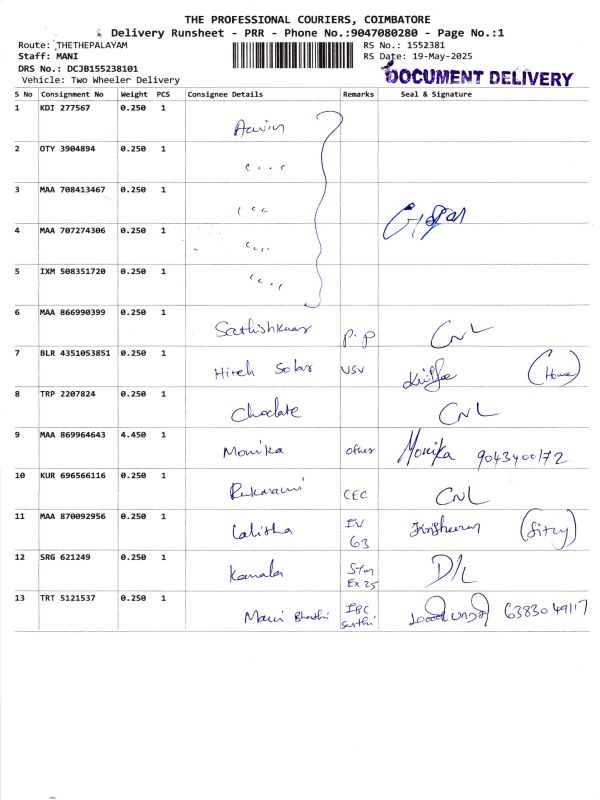 THE PROFESSIONAL COURIERS, COIMBATORE
Delivery Runsheet - PRR - Phone No.:9047080280 - Page No.:1
Route: THETHEPALAYAM RS No.: 1552381
Staff: MANI RS Date: 19-May-2025
DRS No.: DCJB155238101
Vehicle: Two Wheeler Delivery DOCUMENT DELIVERY
S No Consignment No Weight PCS Consignee Details Remarks Seal & Signature
1 KDI 277567 0.250 1
2 OTY 3904894 0.250 1
3 MAA 708413467 0.250 1
4 MAA 707274306 0.250 1
5 IXM 508351720 0.250 1
6 MAA 866990399 0.250 1 Sathishkumar P.P CNL
7 BLR 4351053851 0.250 1 Hitech Solar VSV (Home)
8 TRP 2207824 0.250 1 Choclate CNL
9 MAA 869964643 4.450 1 Monika other Monika 9043400172
10 KUR 696566116 0.250 1 CEC CNL
11 MAA 870092956 0.250 1 Lalitha EV 63
12 SRG 621249 0.250 1 Kamala Ex 25 D/L
13 TRT 5121537 0.250 1 Bharthi IBC 6383049117